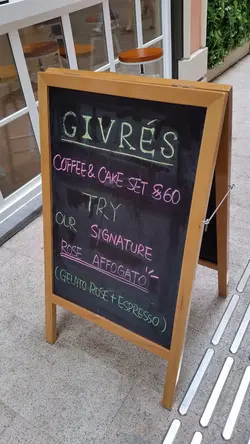 GIVRÉS
COFFEE & CAKE SET $60
TRY
OUR SIGNATURE
ROSE AFFOGATO
(GELATO ROSE + ESPRESSO)